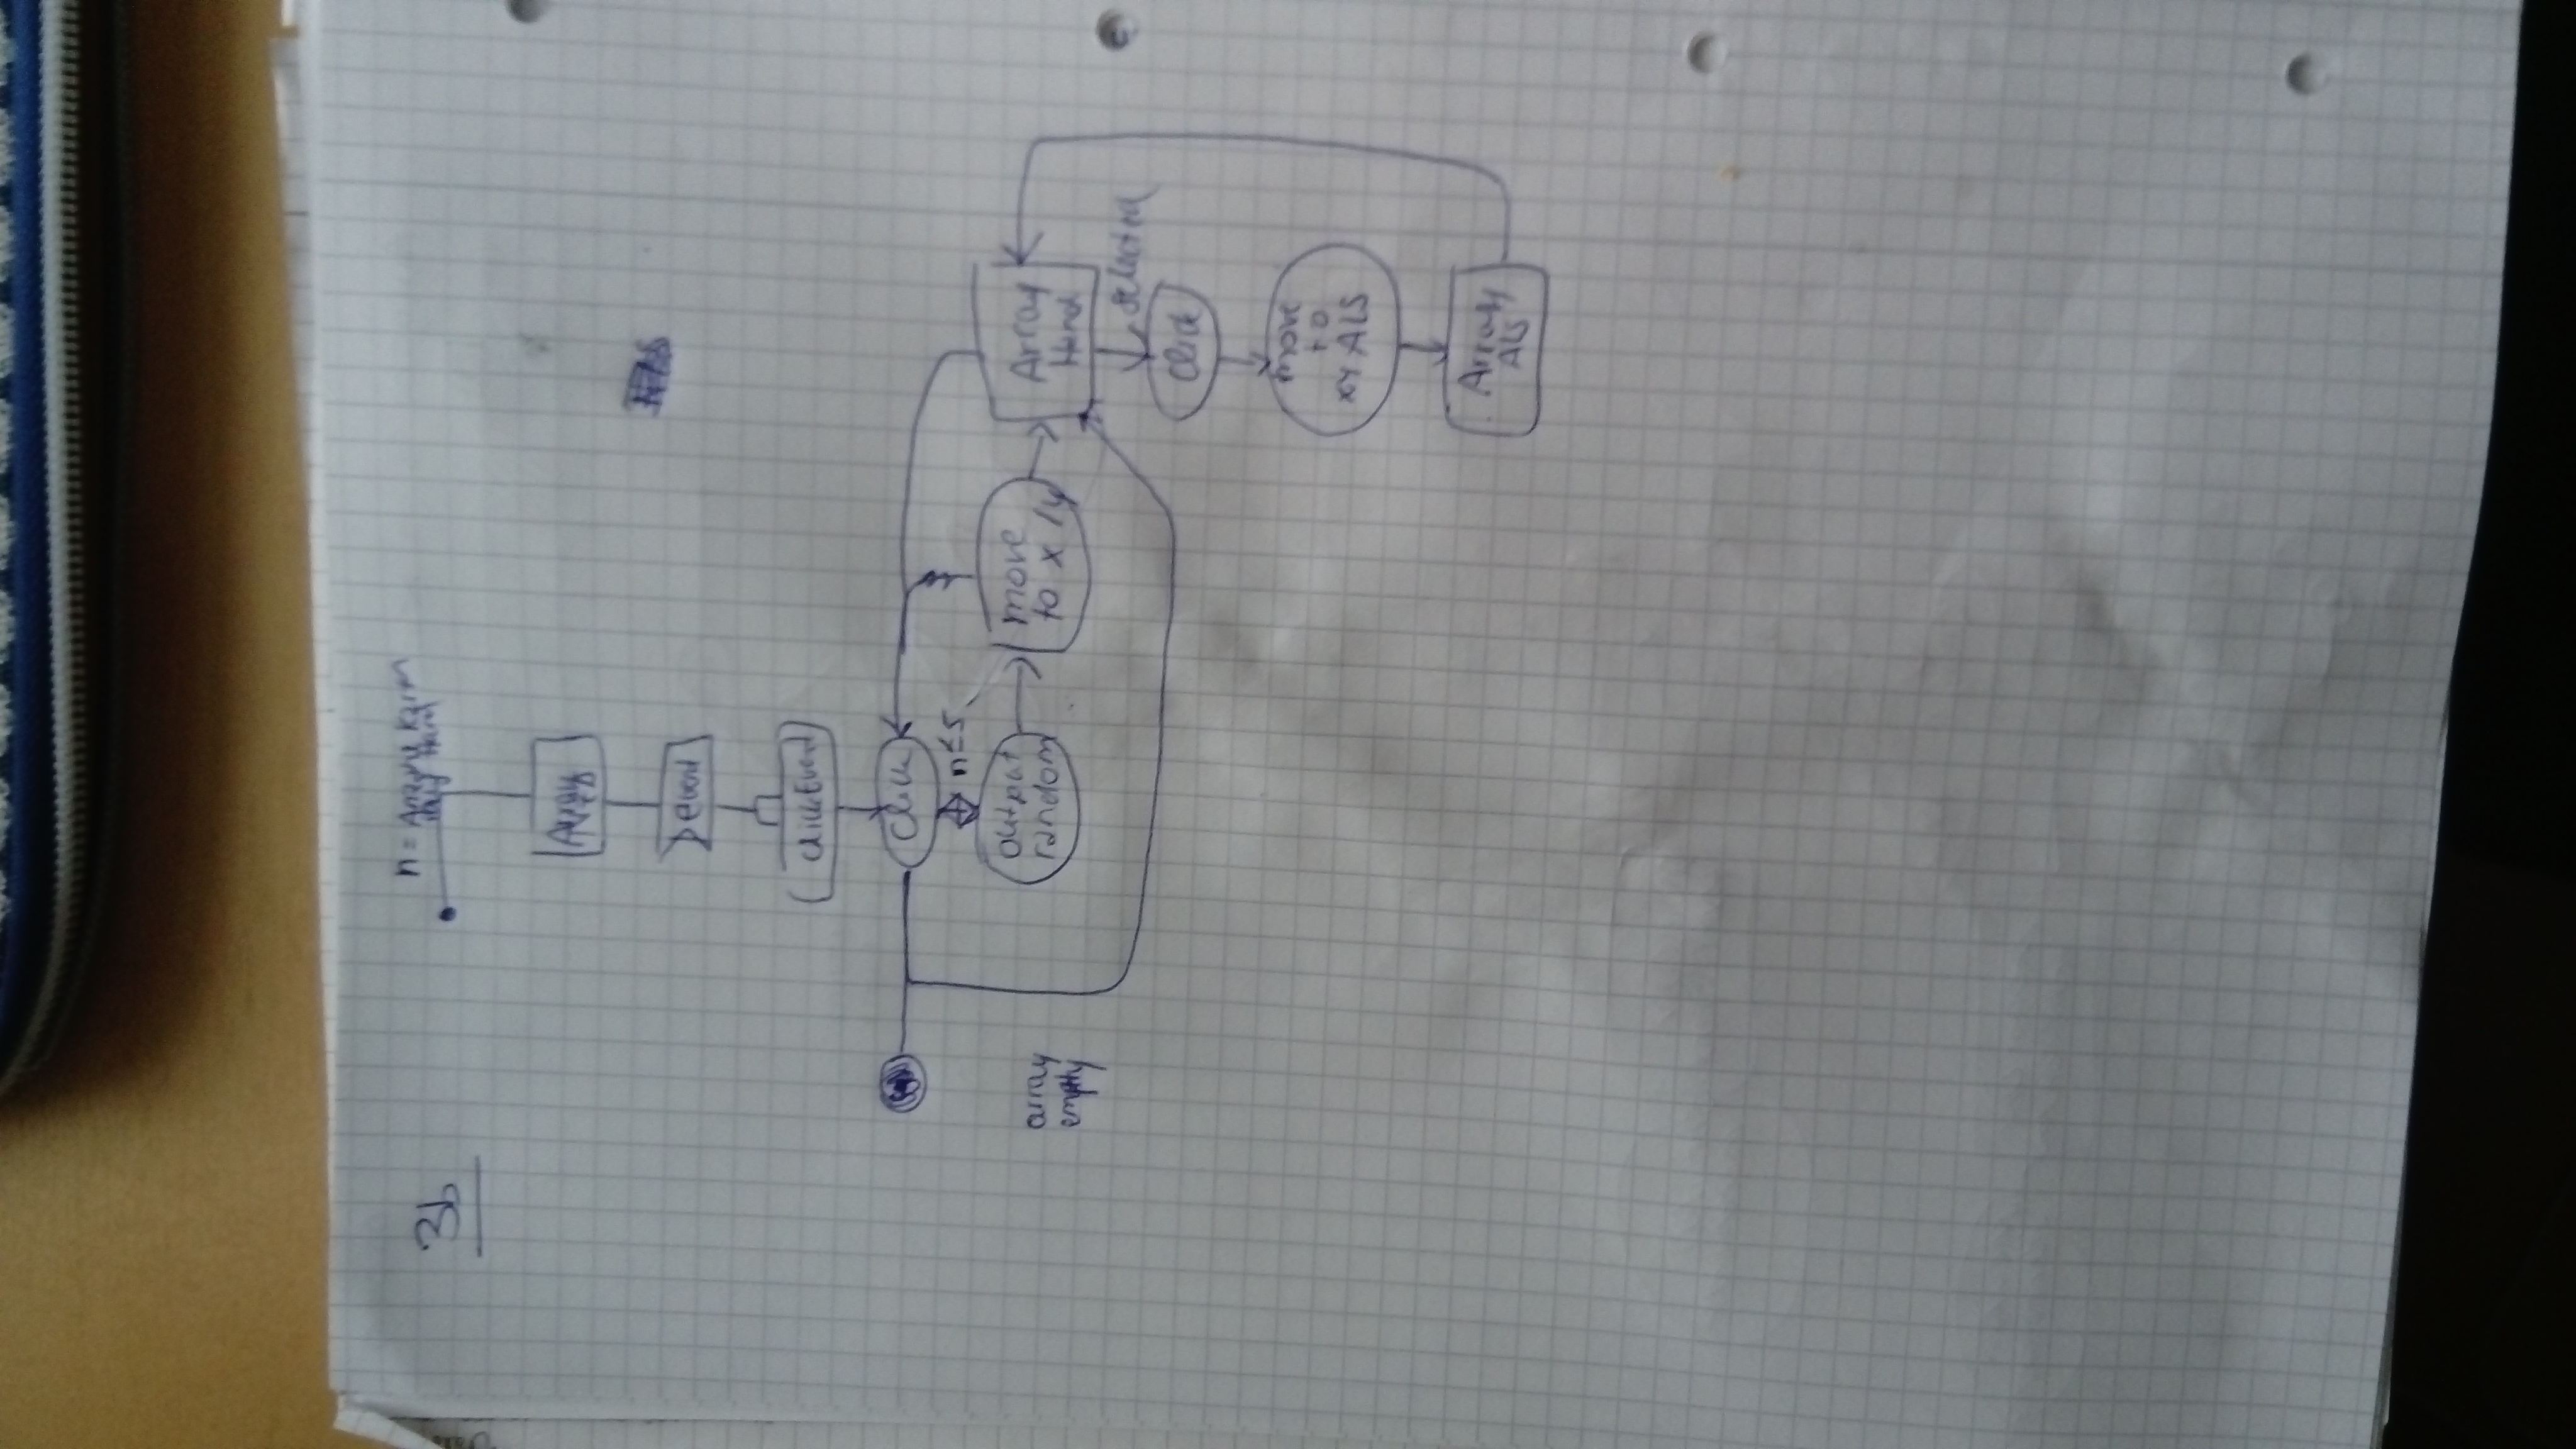 3b
n = Anzahl Karten
auf Hand
Array
event
ClickEvent
Click
n≤5
output
random
move
to x/y
Array
Hand
array
empty
selected
Click
move
to
xy ALS
Array
ALS